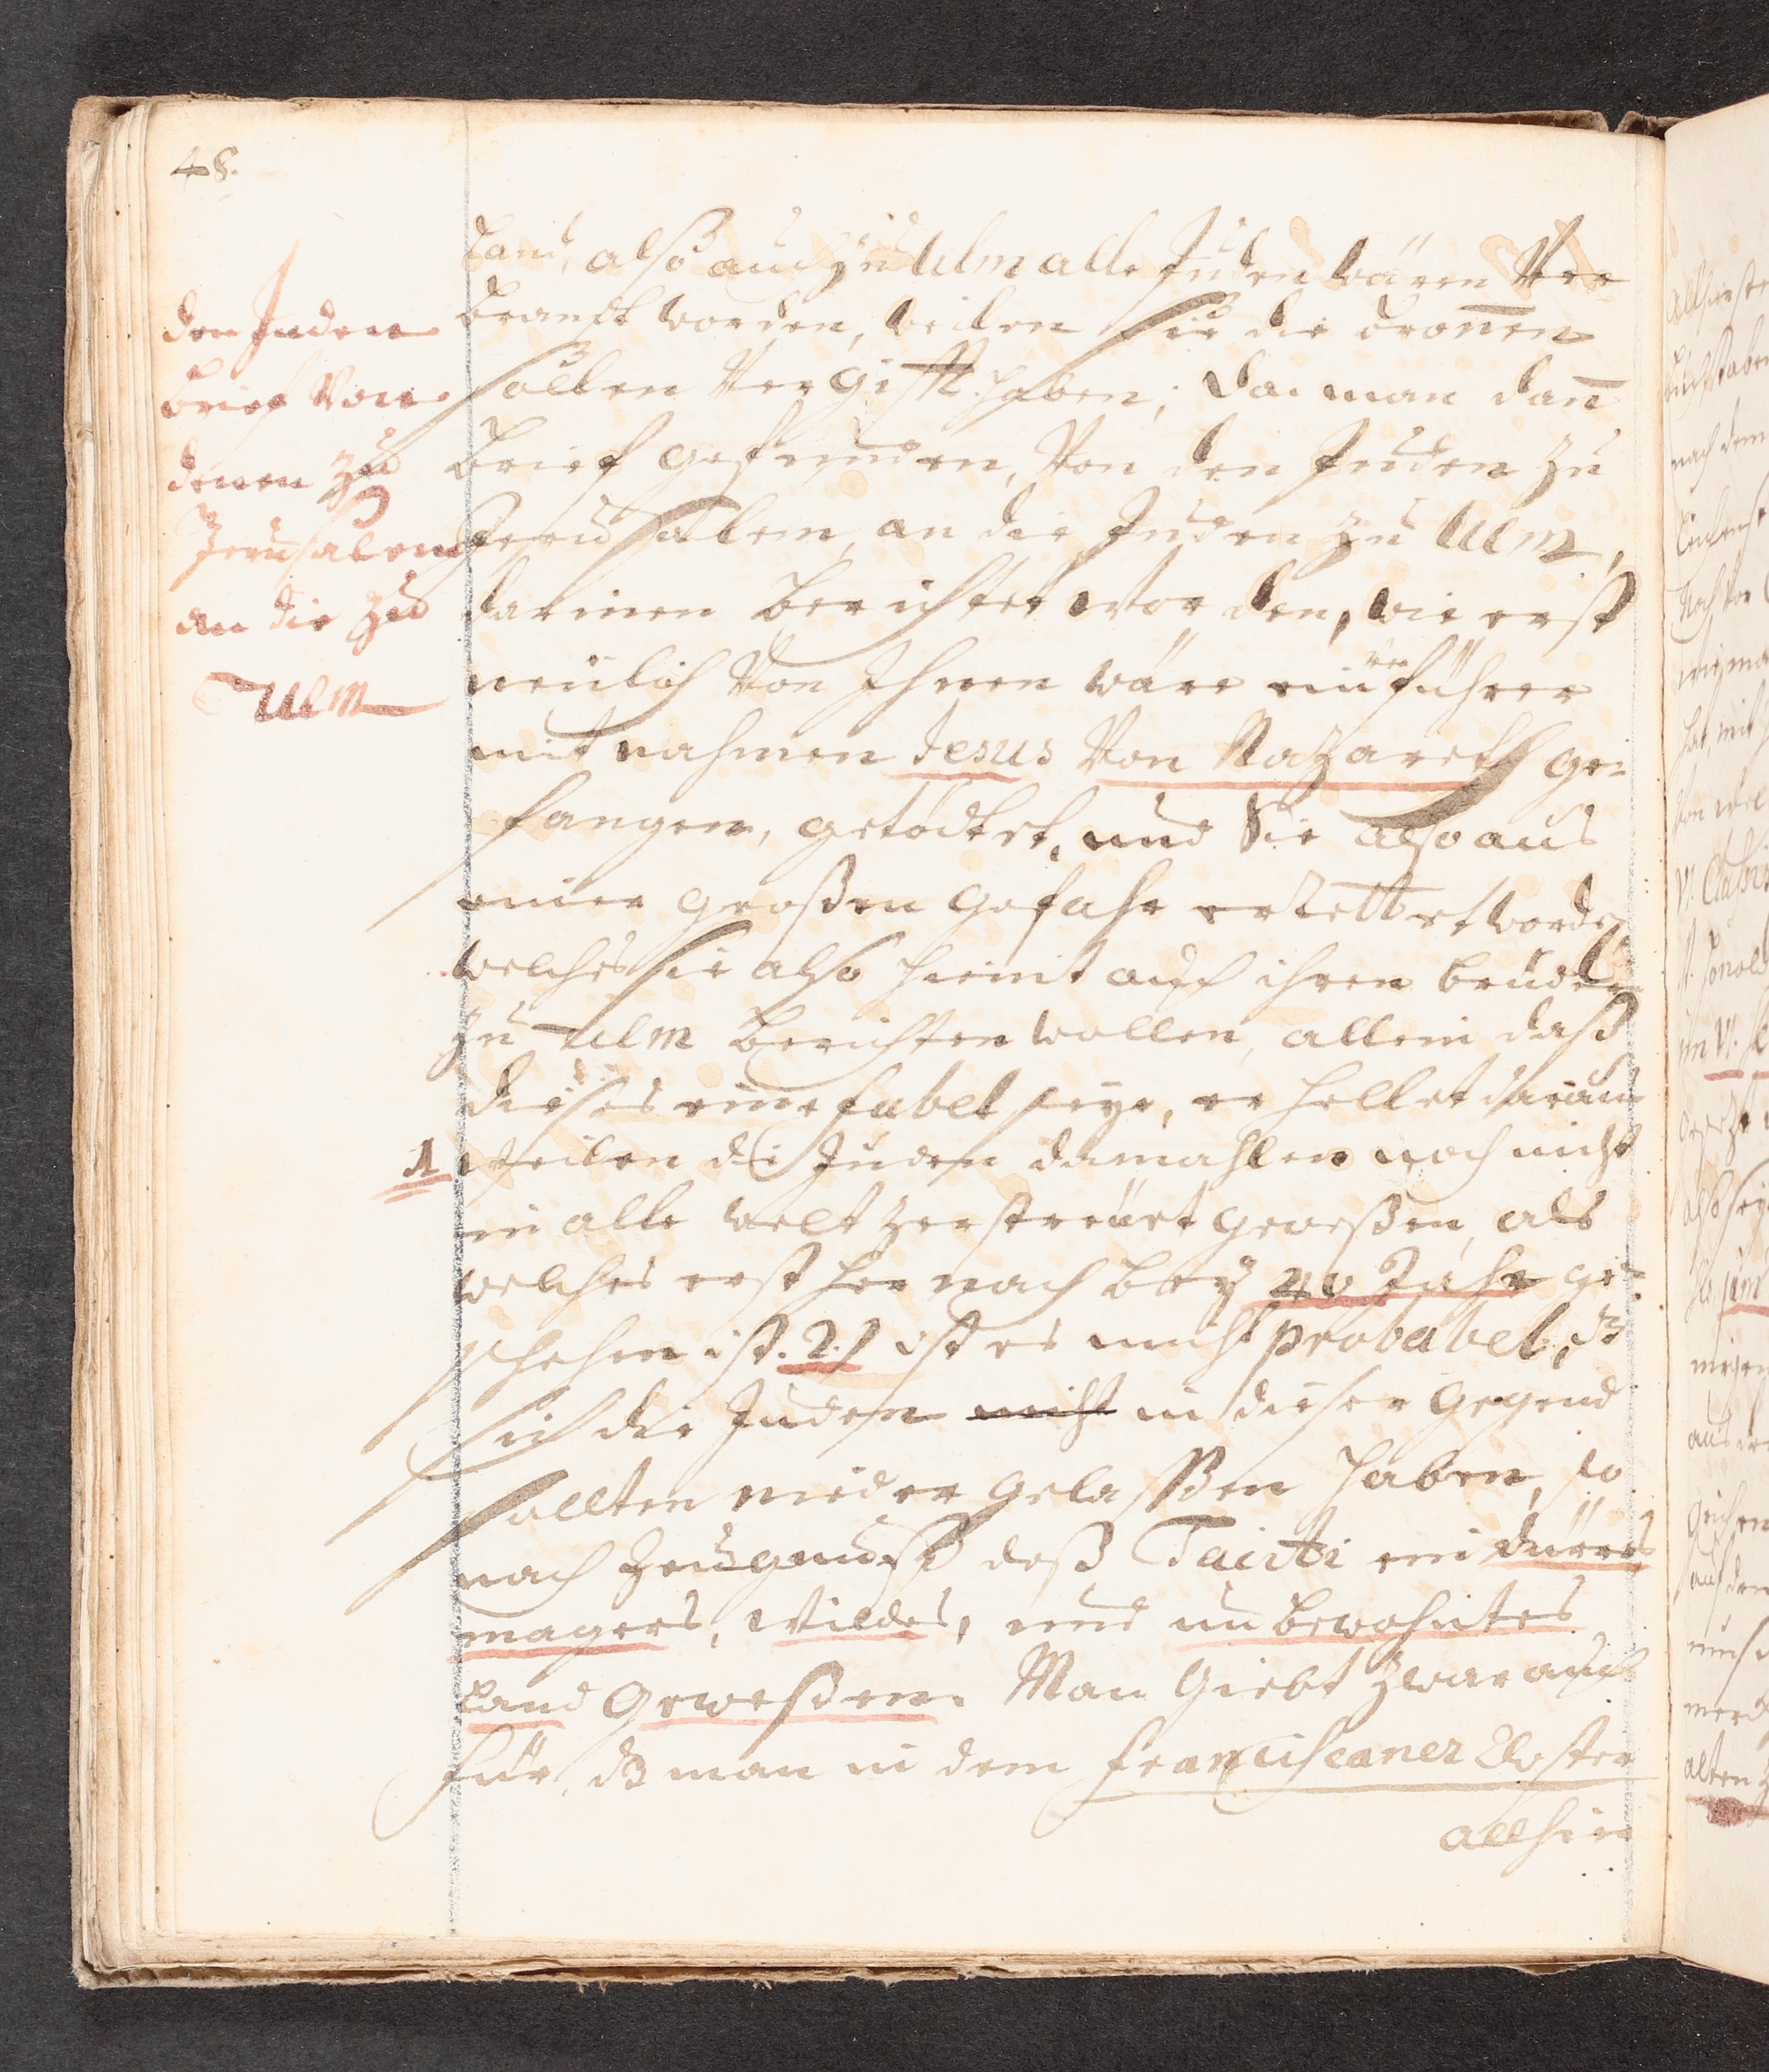 48.
den Juden
Brief Von
denen zu
Jerusalem
an die zu
Ulm
Land, also auch zu Ulm alle Juden wären Ver
brandt worden, weilen sie die Bronnen
sollen Vergifft haben; da man dann
Brief gefunden, Von den Juden zu
Jerusalem, an die Juden zu Ulm,
darinnen berichtet worden, wie erst
neulich Von Ihnen wäre ein Verführer
mit nahmen Jesus Von Nazareth ge-
fangen, getödtet, und Sie also aus
einer großen Gefahr errettet worden
welches sie also hiemit auch ihren brüdern
zu Ulm berichten wollen, allein daß
dieses eine fabel seye, erhellet daraus
1 Weilen die Juden damahlen noch nicht
in alle welt zerstreuet geweßen, als
welches erst hernach bey 40 Jahr ge-
schehen ist. 2.) ist es nicht probabel, dz
sich die Juden nicht in dieser Gegend
sollten nieder gelaßen haben, so
nach Zeugnuß deß Taciti ein dürres
magers, wildes, und unbewohntes
Land Geweßen. Man Giebt zwar auch
für, dß man in dem franciscaner Closter
allhier